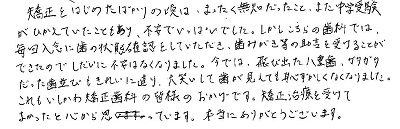 矯正をはじめたばかりの頃は、まったく無知だったこと、また中学受験
がひかえていたこともあり、不安でいっぱいでした。しかしこちらの歯科では、
毎回入念に歯の状態確認をしていただき、歯みがき等の助言を受けることが
できたのでしだいに不安はなくなりました。今では、飛び出た八重歯、ガタガタ
だった歯並びもきれいに造り、大笑いして歯が見えても恥ずかしくなくなりました。
これもいしかわ矯正歯科の皆様のおかげです。矯正治療を受けて
よかったと心から思っています。本当にありがとうございます。